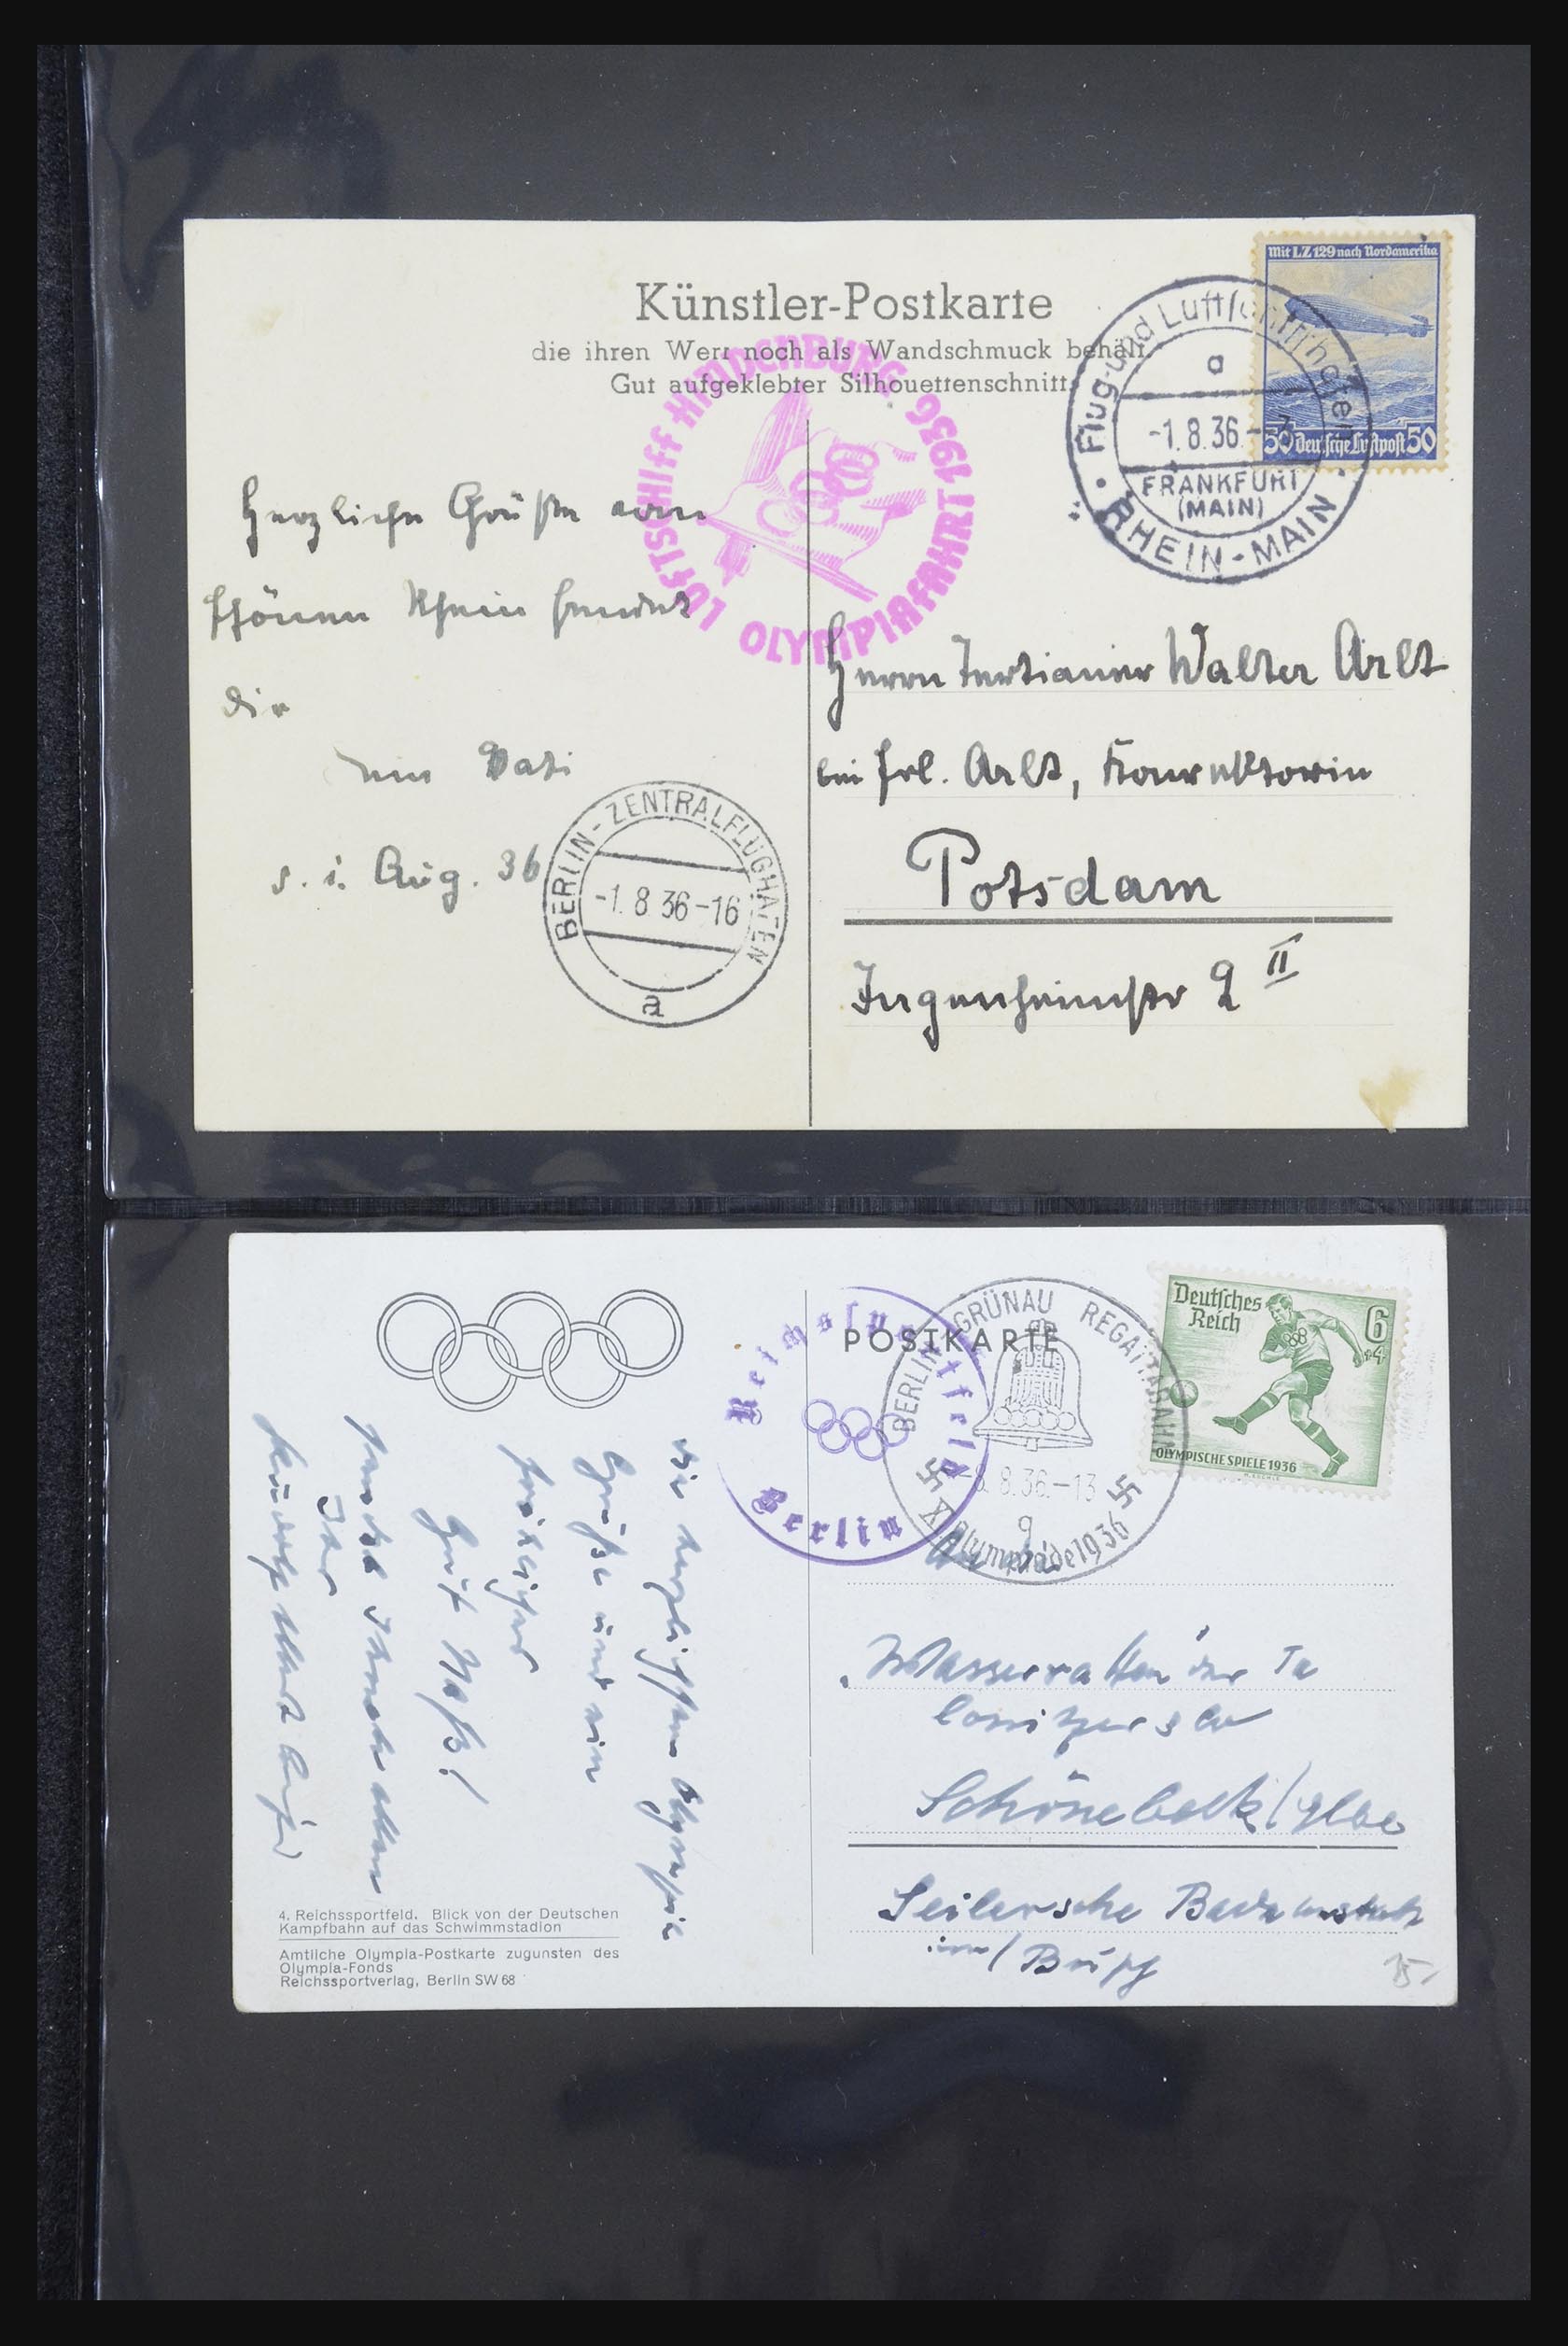 Künstler-Postkarte
die ihren Wert noch als Wandschmuck behält.
Gut aufgeklebter Silhouettenschnitt.
Mit LZ 129 nach Nordamerika
50 Deutsche Luftpost 50
Flug- und Luftschiffhafen
a
-1.8.36.--7
FRANKFURT
(MAIN)
RHEIN-MAIN
LUFTSCHIFF HINDENBURG
OLYMPIAFAHRT 1936
Herzliche Grüße vom
schönen Rhein sendet
dir
dein Vati
d. 1. Aug. 36
BERLIN-ZENTRALFLUGHAFEN
-1.8.36-16
a
Herrn Tertianer Walter Arlt
bei Frl. Arlt, Konrektorin
Potsdam
Jugenheimstr 2 II
POSTKARTE
Reichssportfeld
Berlin
BERLIN-GRÜNAU REGATTABAHN
8.8.36.-13
g
XI. Olympiade 1936
Deutsches
Reich
6
+4
OLYMPISCHE SPIELE 1936
die herzlichsten Olympia
Grüße und ein
kräftiges
Gut Naß!
Ihr
An die
Wasserratten der
Schönebeck/Elbe
Seilersche Badeanstalt
4. Reichssportfeld. Blick von der Deutschen
Kampfbahn auf das Schwimmstadion
Amtliche Olympia-Postkarte zugunsten des
Olympia-Fonds
Reichssportverlag, Berlin SW 68